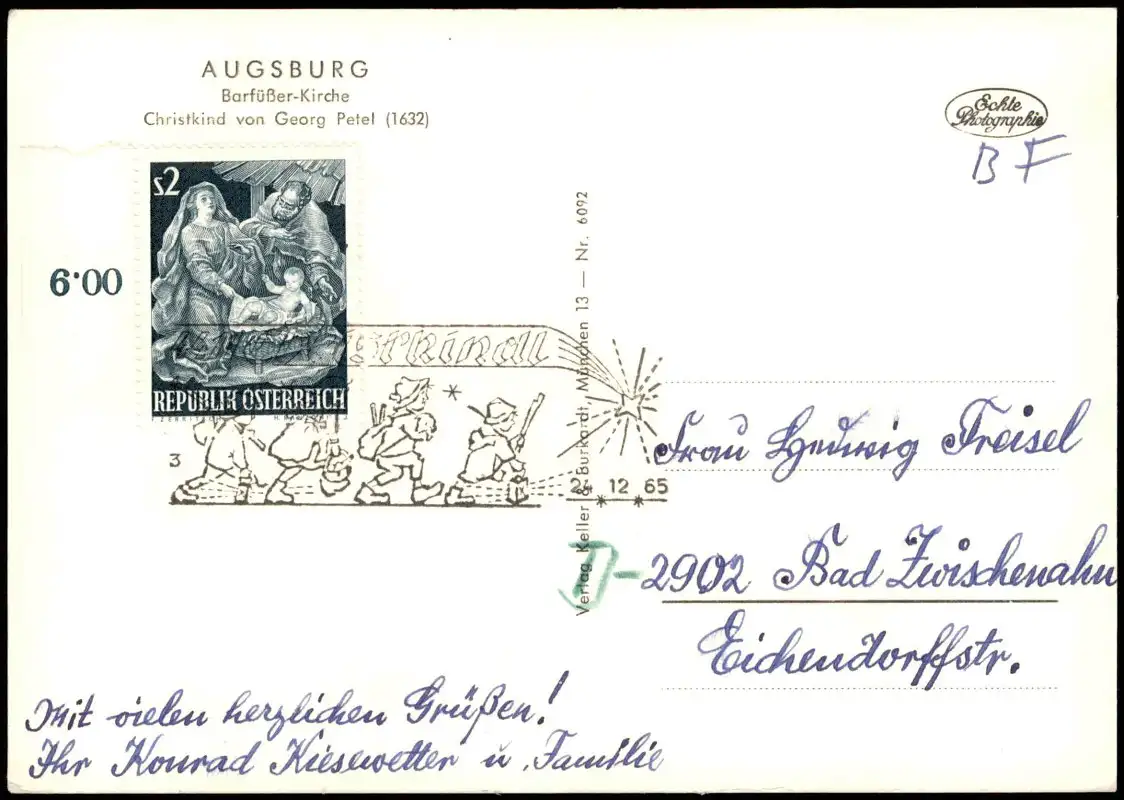 AUGSBURG
Barfüßer-Kirche
Christkind von Georg Petel (1632)
Echte
Photographie
B F
s2
6·00
REPUBLIK ÖSTERREICH
3
24 12 65
Verlag Keller & Burkardt, München 13 — Nr. 6092
Frau Hedwig Freisel
D-2902 Bad Zwischenahn
Eichendorffstr.
Mit vielen herzlichen Grüßen!
Ihr Konrad Kiesewetter u. Familie